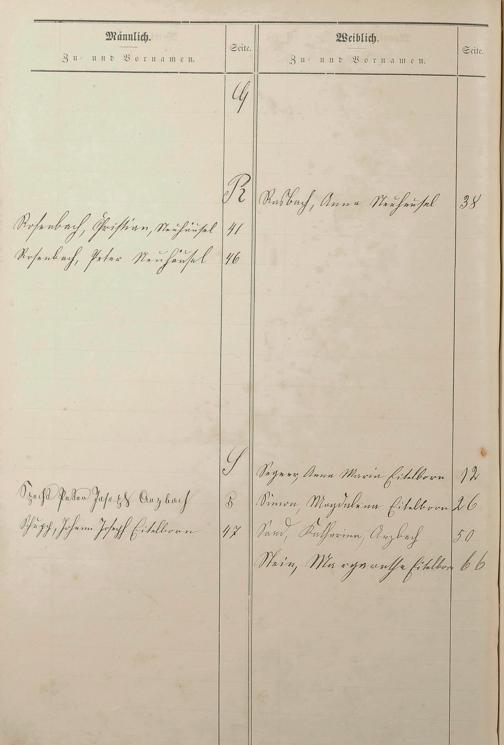 Männlich.
Zu- und Vornamen.
Seite.
Weiblich.
Zu- und Vornamen.
Seite.
Q
R
Rasbach, Anna Neuhäusel 38
Rosenbach, Christian, Neuhäusel 41
Rosenbach, Peter Neuhäusel 46
S
Anna Maria Eitelborn 12
Specht Peter Joseph Arzbach 8
Simon, Magdalena Eitelborn 26
Schupp, Johann Joseph Eitelborn 47
Sand, Katharina, Arzbach 50
Stein, Margarethe Eitelborn 66